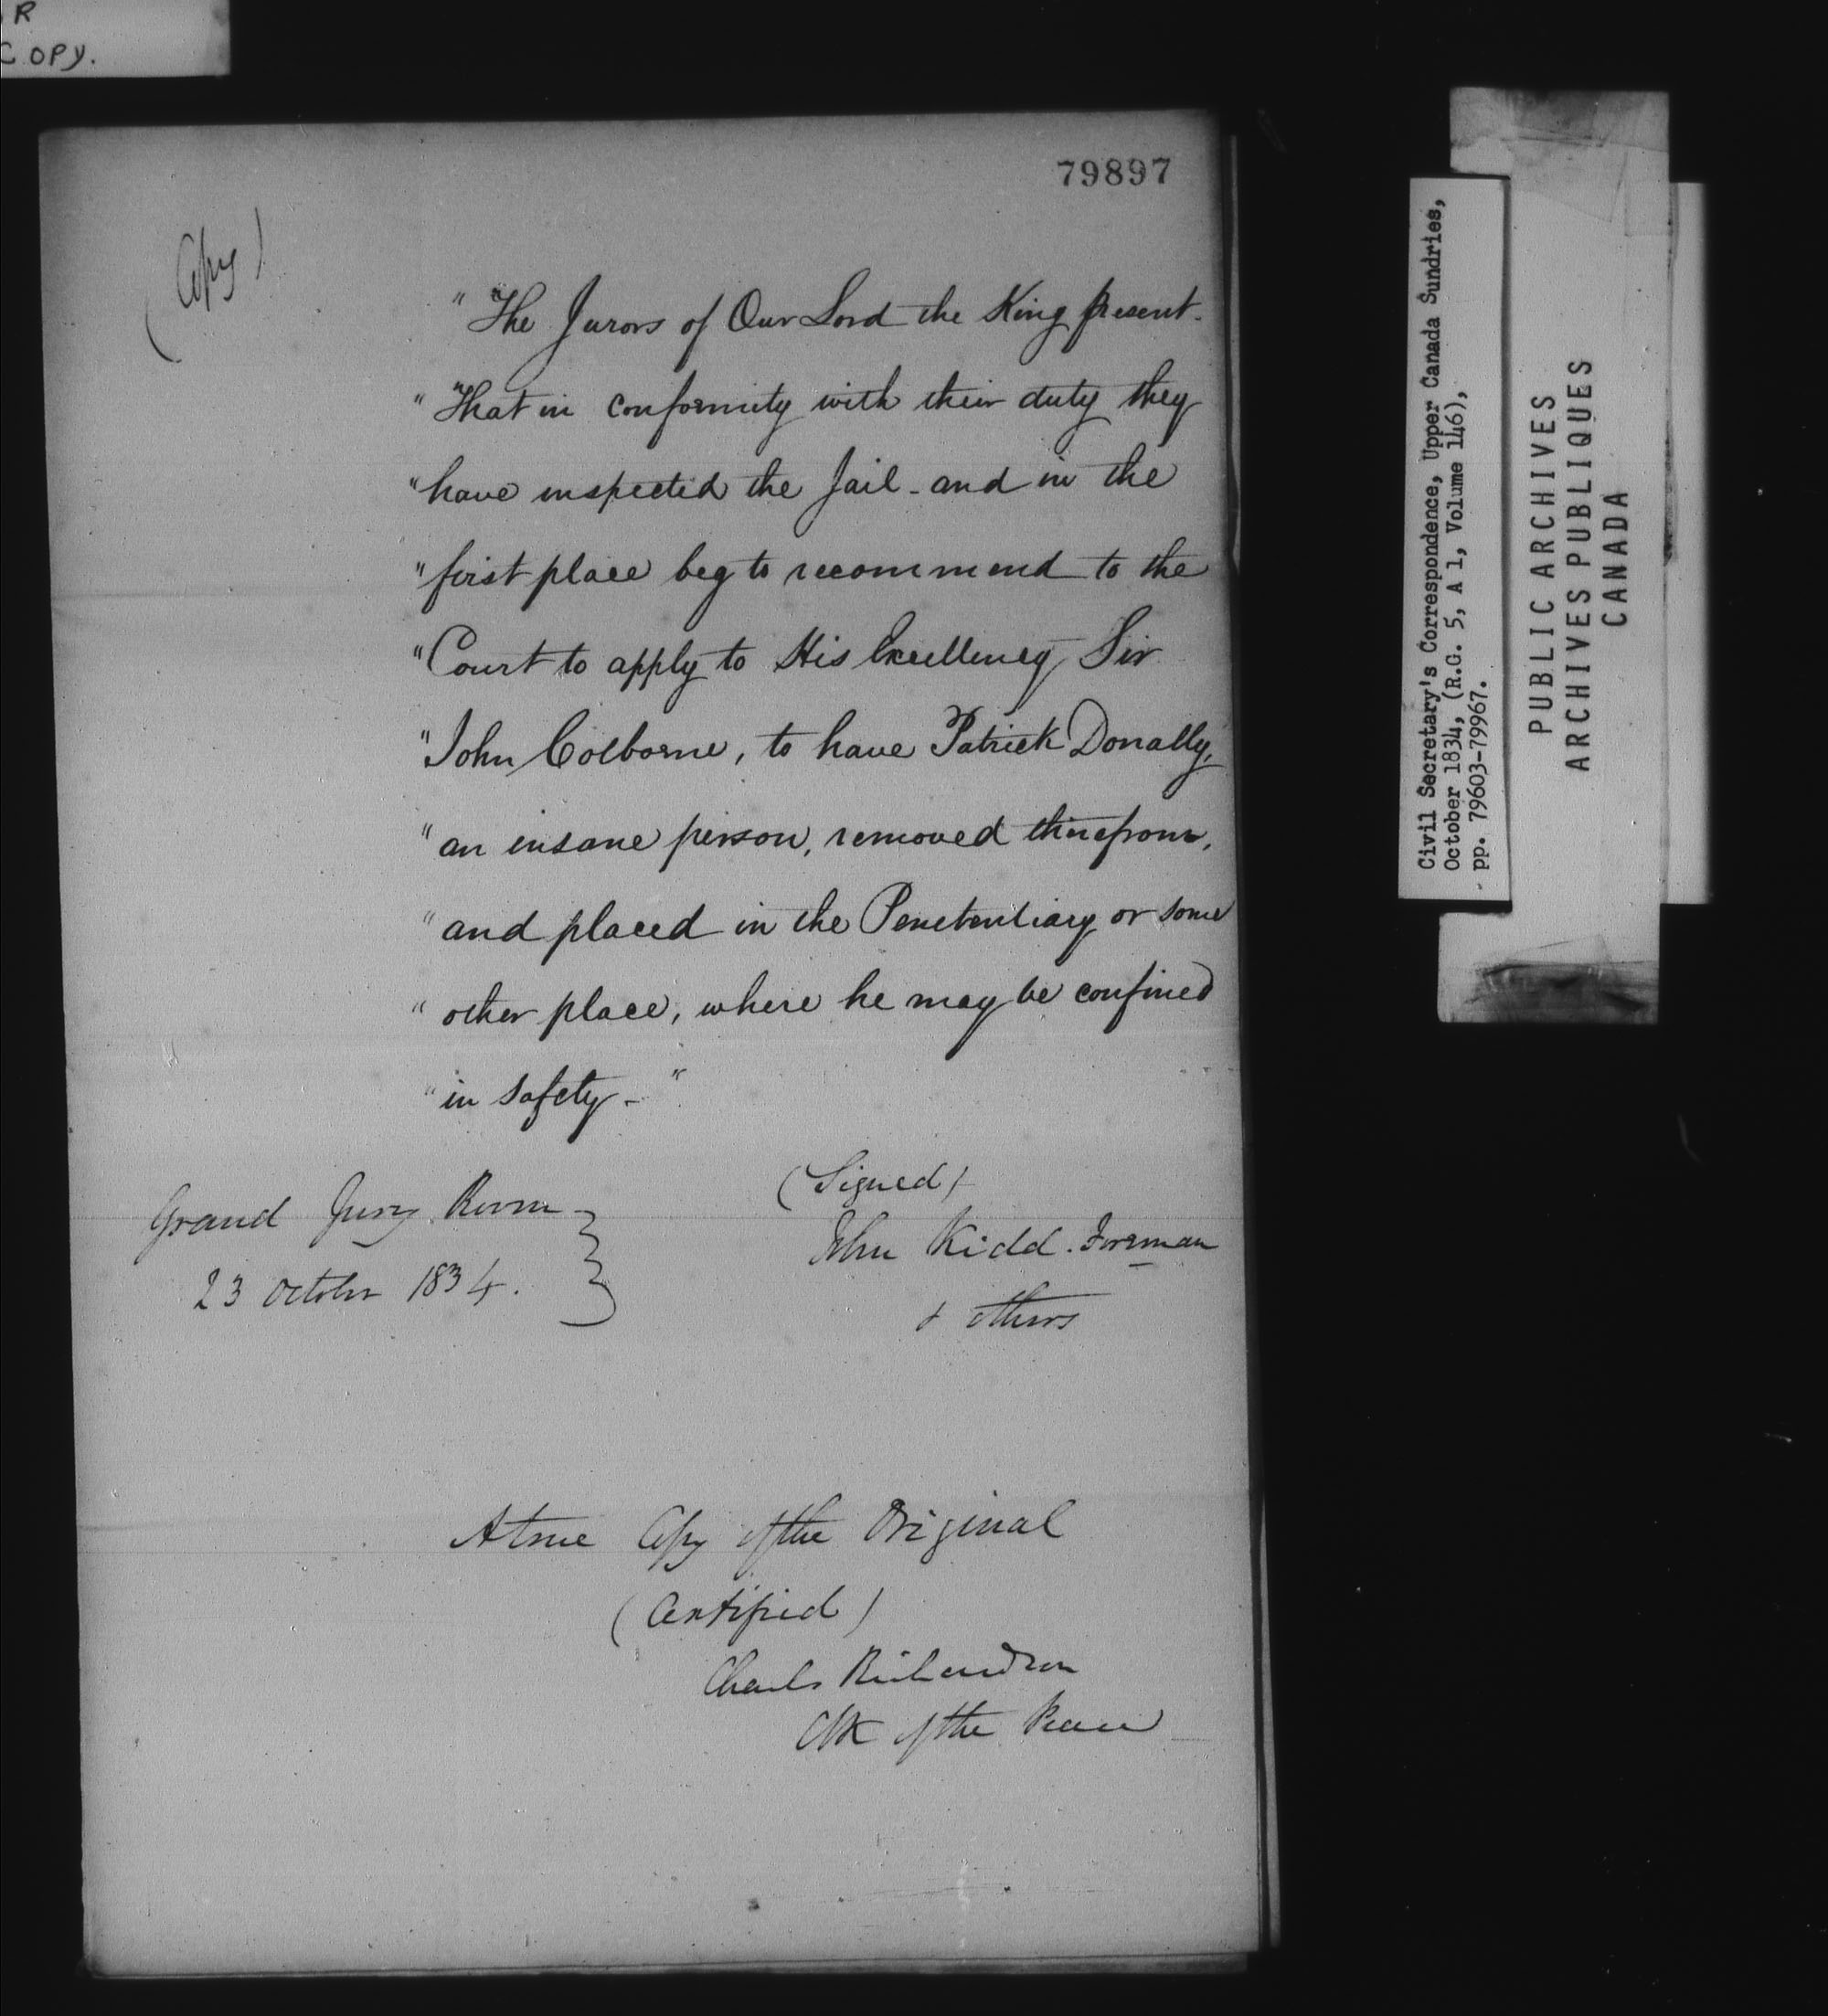 R
COPY.
79897
(Copy)
" "The Jurors of Our Lord the King present.
" "That in conformity with their duty they
" have inspected the Jail - and in the
" first place beg to recommend to the
" Court to apply to His Excellency Sir
" John Colborne, to have Patrick Donally,
" an insane person, removed therefrom,
" and placed in the Penetentiary or some
" other place, where he may be confined
" in safety - "
Grand Jury Room
23 October 1834.
(Signed)
John Kidd. Foreman
& others
A true Copy of the Original
(Certified)
Charles Richardson
Clk of the Peace
Civil Secretary's Correspondence, Upper Canada Sundries,
October 1834, (R.G. 5, A 1, Volume 146),
pp. 79603-79967.
PUBLIC ARCHIVES
ARCHIVES PUBLIQUES
CANADA